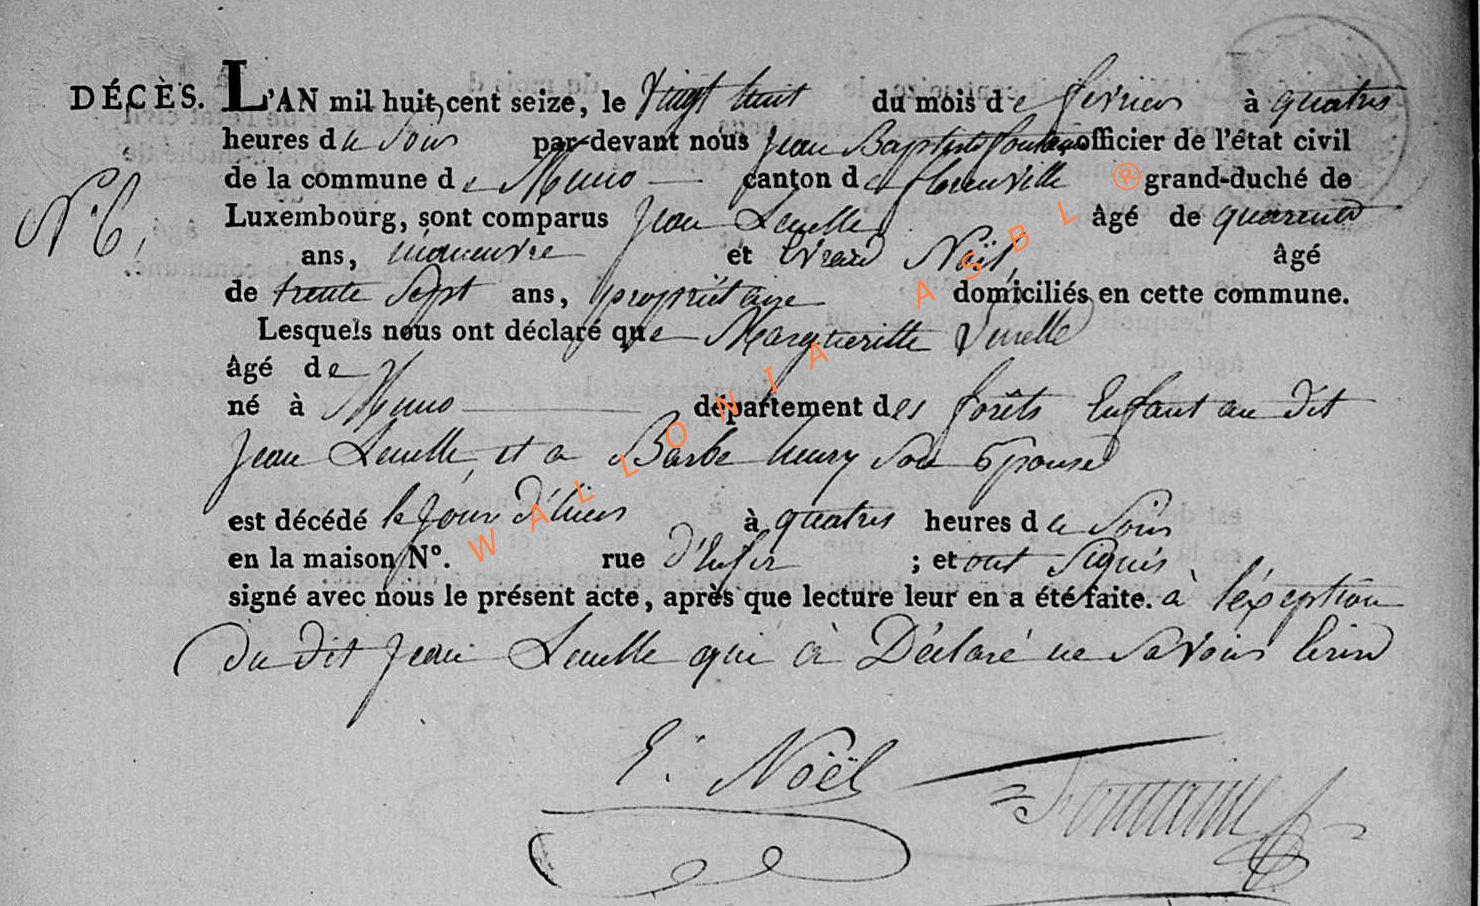 DÉCÈS. L'AN mil huit cent seize, le Vingt huit du mois de fevrier à quatres
heures du Soir par-devant nous Jean Baptiste fontaine officier de l'état civil
N.° 6, de la commune de Muno canton de florenville ® grand-duché de
Luxembourg, sont comparus Jean Lenelle âgé de quarente
ans, manouvre et Evrard Noël, âgé
de trente Sept ans, propriétaire domiciliés en cette commune.
Lesquels nous ont déclaré que Margueritte Lenelle
âgé de
né à Muno département des forêts Enfant au dit
Jean Lenelle, et a Barbe henry Son Epouse
est décédé le jour d'hier à quatres heures du Soir
en la maison N°. rue d'Enfer ; et ont Signés
signé avec nous le présent acte, après que lecture leur en a été faite. à l'éxception
du dit Jean Lenelle qui à Déclaré ne Savoir Ecrire
E. Noël Fontaine
WALLONIA ASBL